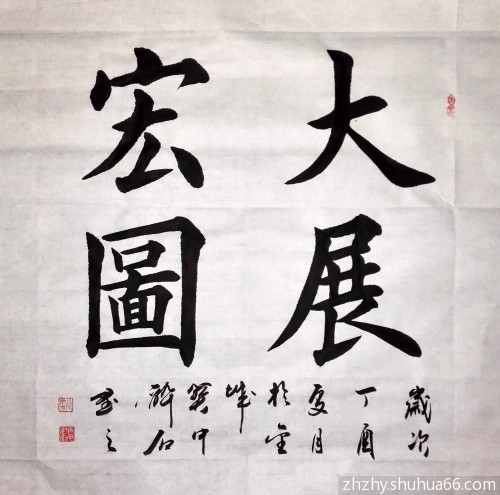 大展
宏圖
歲次
丁酉
夏月
於金
城
石
之
zhzhy.shuhua66.com